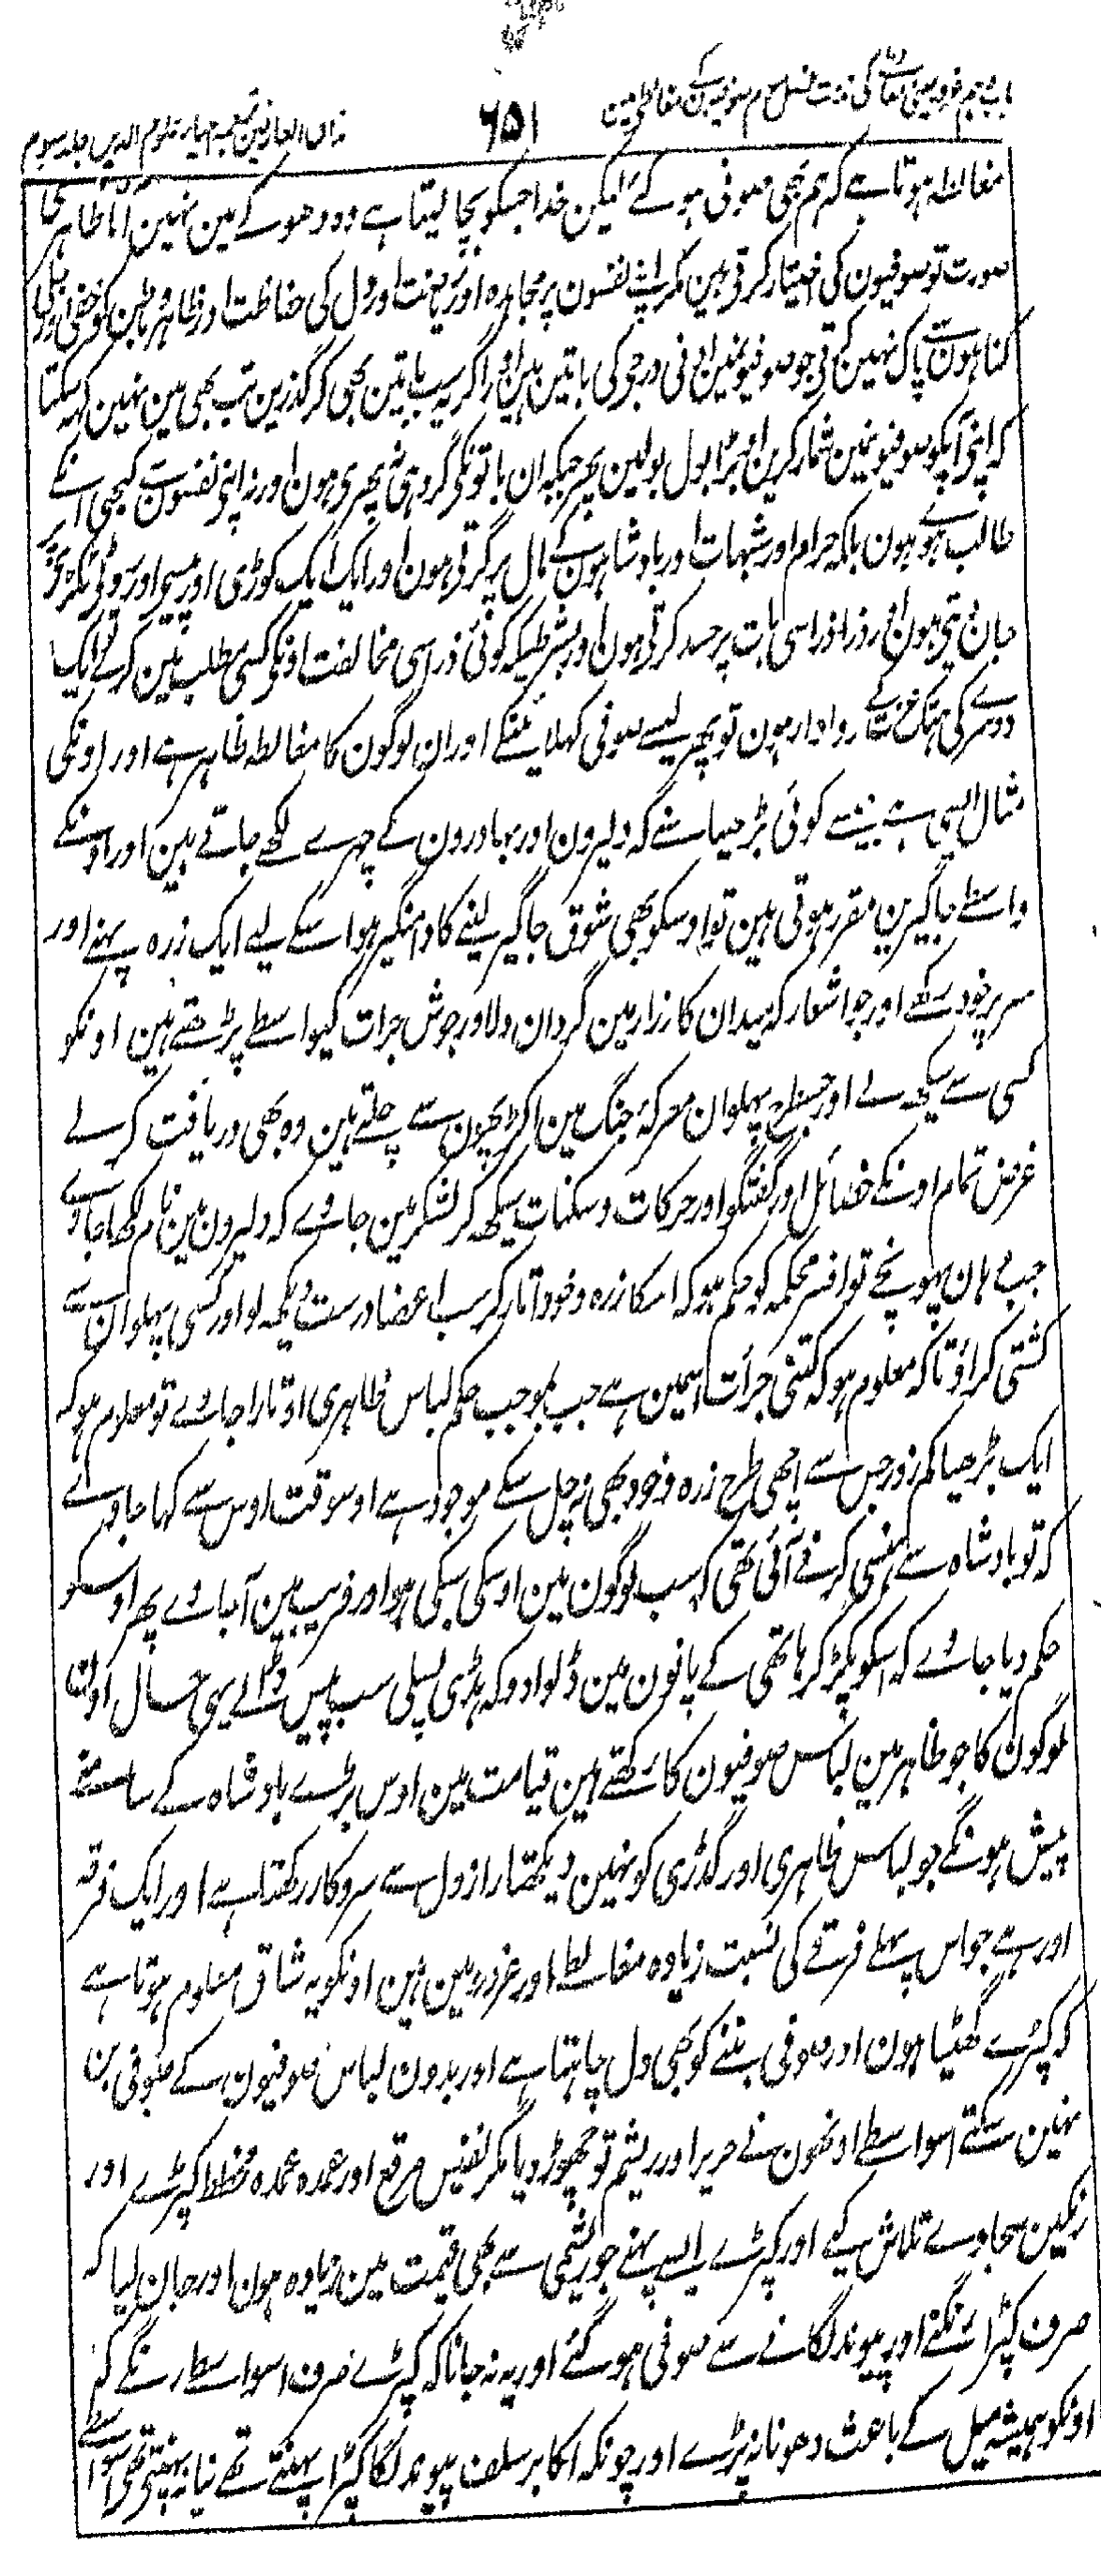 باب دہم غرور یعنی مغالطے کی مذمت فصل دوم صوفیون کے مغالطے مین
۶۵۱
مذاق العارفین ترجمہ احیاء علوم الدین جلد سوم
مغالطہ ہوتا ہے کہ ہم بھی صوفی ہو گئے لیکن خدا جسکو بچا لیتا ہے وہ دھوکے مین نہین آتا ظاہر کی
صورت تو صوفیون کی اختیار کرتے ہین مگر اپنے نفسون پر مجاہدہ اور ریاضت اور دل کی حفاظت اور ظاہر و باطن کو خفی اور جلی
گناہون سے پاک نہین کرتے جو صوفیو نمین ادنی درجے کی باتین ہین اور اگر یہ سب باتین بھی کر گذرین تب بھی مین نہین کہہ سکتا
کہ اپنے آپکو صوفیو نمین شمار کرین اور بڑا بول بولین پھر جبکہ ان باتونکے گرد ہی نہ پھرے ہون اور نہ اپنے نفسون سے کبھی انکے
طالب ہوئے ہون بلکہ حرام اور شبہات اور بادشاہون کے مال پر گرتے ہون اور ایک ایک کوڑی اور پیسے اور روٹی ٹکڑے پر
جان دیتے ہون اور ذرا ذرا سی بات پر حسد کرتے ہون اور بشرطیکہ کوئی ذرا سی مخالفت اونکے کسی مطلب مین کرے تو ایک
دوسرے کی ہتک عزت کے روادار ہون تو پھر کیسے صوفی کہلائینگے اور ان لوگون کا مغالطہ ظاہر ہے اور اونکی
مثال ایسی ہے جیسے کوئی بڑھیا سنے کہ دلیرون اور بہادرون کے چہرے لکھے جاتے ہین اور اونکے
واسطے جاگیرین مقرر ہوتی ہین تو اوسکو بھی شوق جاگیر لینے کا دامنگیر ہو اسکے لیے ایک زرہ پہنے اور
سر پر خود رکھے اور جو اشعار کہ میدان کارزار مین گردان دلاور جوش جرات کیواسطے پڑھتے ہین اونکو
کسی سے سیکھ لے اور جسطرح پہلوان معرکۂ جنگ مین اکڑ پچون سے چلتے ہین وہ بھی دریافت کر لے
غرض تمام اونکے خصائل اور گفتگو اور حرکات و سکنات سیکھ کر لشکر مین جاوے کہ دلیرون مین نام لکھا جاوے
جب وہان پہونچے تو افسر محکمہ کو حکم ہو کہ اسکا زرہ و خود اتار کر سب اعضا درست دیکھ لو اور کسی پہلوان سے
کشتی کراؤ تا کہ معلوم ہو کہ کتنی جرات اسمین ہے جب بموجب حکم لباس ظاہری اوتارا جاوے تو معلوم ہو کہ
ایک بڑھیا کم زور جس سے اچھی طرح زرہ و خود بھی نہ چل سکے موجود ہے اوسوقت اوس سے کہا جاوے
کہ تو بادشاہ سے ہنسی کرنے آئی تھی کہ سب لوگون مین اوسکی سبکی ہو اور فریب مین آجاوے پھر اوسکو
حکم دیا جاوے کہ اسکو پکڑ کر ہاتھی کے پانون مین ڈلوا دو کہ ہڈی پسلی سب پیس ڈالے یہی حال اون
لوگون کا جو ظاہر مین لباس صوفیون کا رکھتے ہین قیامت مین اوس بڑے بادشاہ کے سامنے
پیش ہونگے جو لباس ظاہری اور گدڑی کو نہین دیکھتا راز دل سے سروکار رکھتا ہے اور ایک فرقہ
اور ہے جو اس پہلے فرقے کی نسبت زیادہ مغالطے اور غرور مین ہین اونکو یہ شاق معلوم ہوتا ہے
کہ کپڑے گھٹیا ہون اور صوفی بننے کو بھی دل چاہتا ہے اور بدون لباس صوفیون کے صوفی بن
نہین سکتے اسواسطے اونھون نے حریر اور ریشم تو چھوڑ دیا مگر نفیس مرقع اور عمدہ عمدہ مخطط کپڑے اور
رنگین سجادے تلاش کیے اور کپڑے ایسے پہنے جو ریشمی سے بھی قیمت مین زیادہ ہون اور جان لیا کہ
صرف کپڑا رنگنے اور پیوند لگانے سے صوفی ہو گئے اور یہ نہ جانا کہ کپڑے صرف اسواسطے رنگے کہ
اونکو ہمیشہ میل کے باعث دھونا نہ پڑے اور چونکہ اکابر سلف پیوند لگا کپڑا پہنتے تھے نیا نہ پہنتے تھے اسواسطے